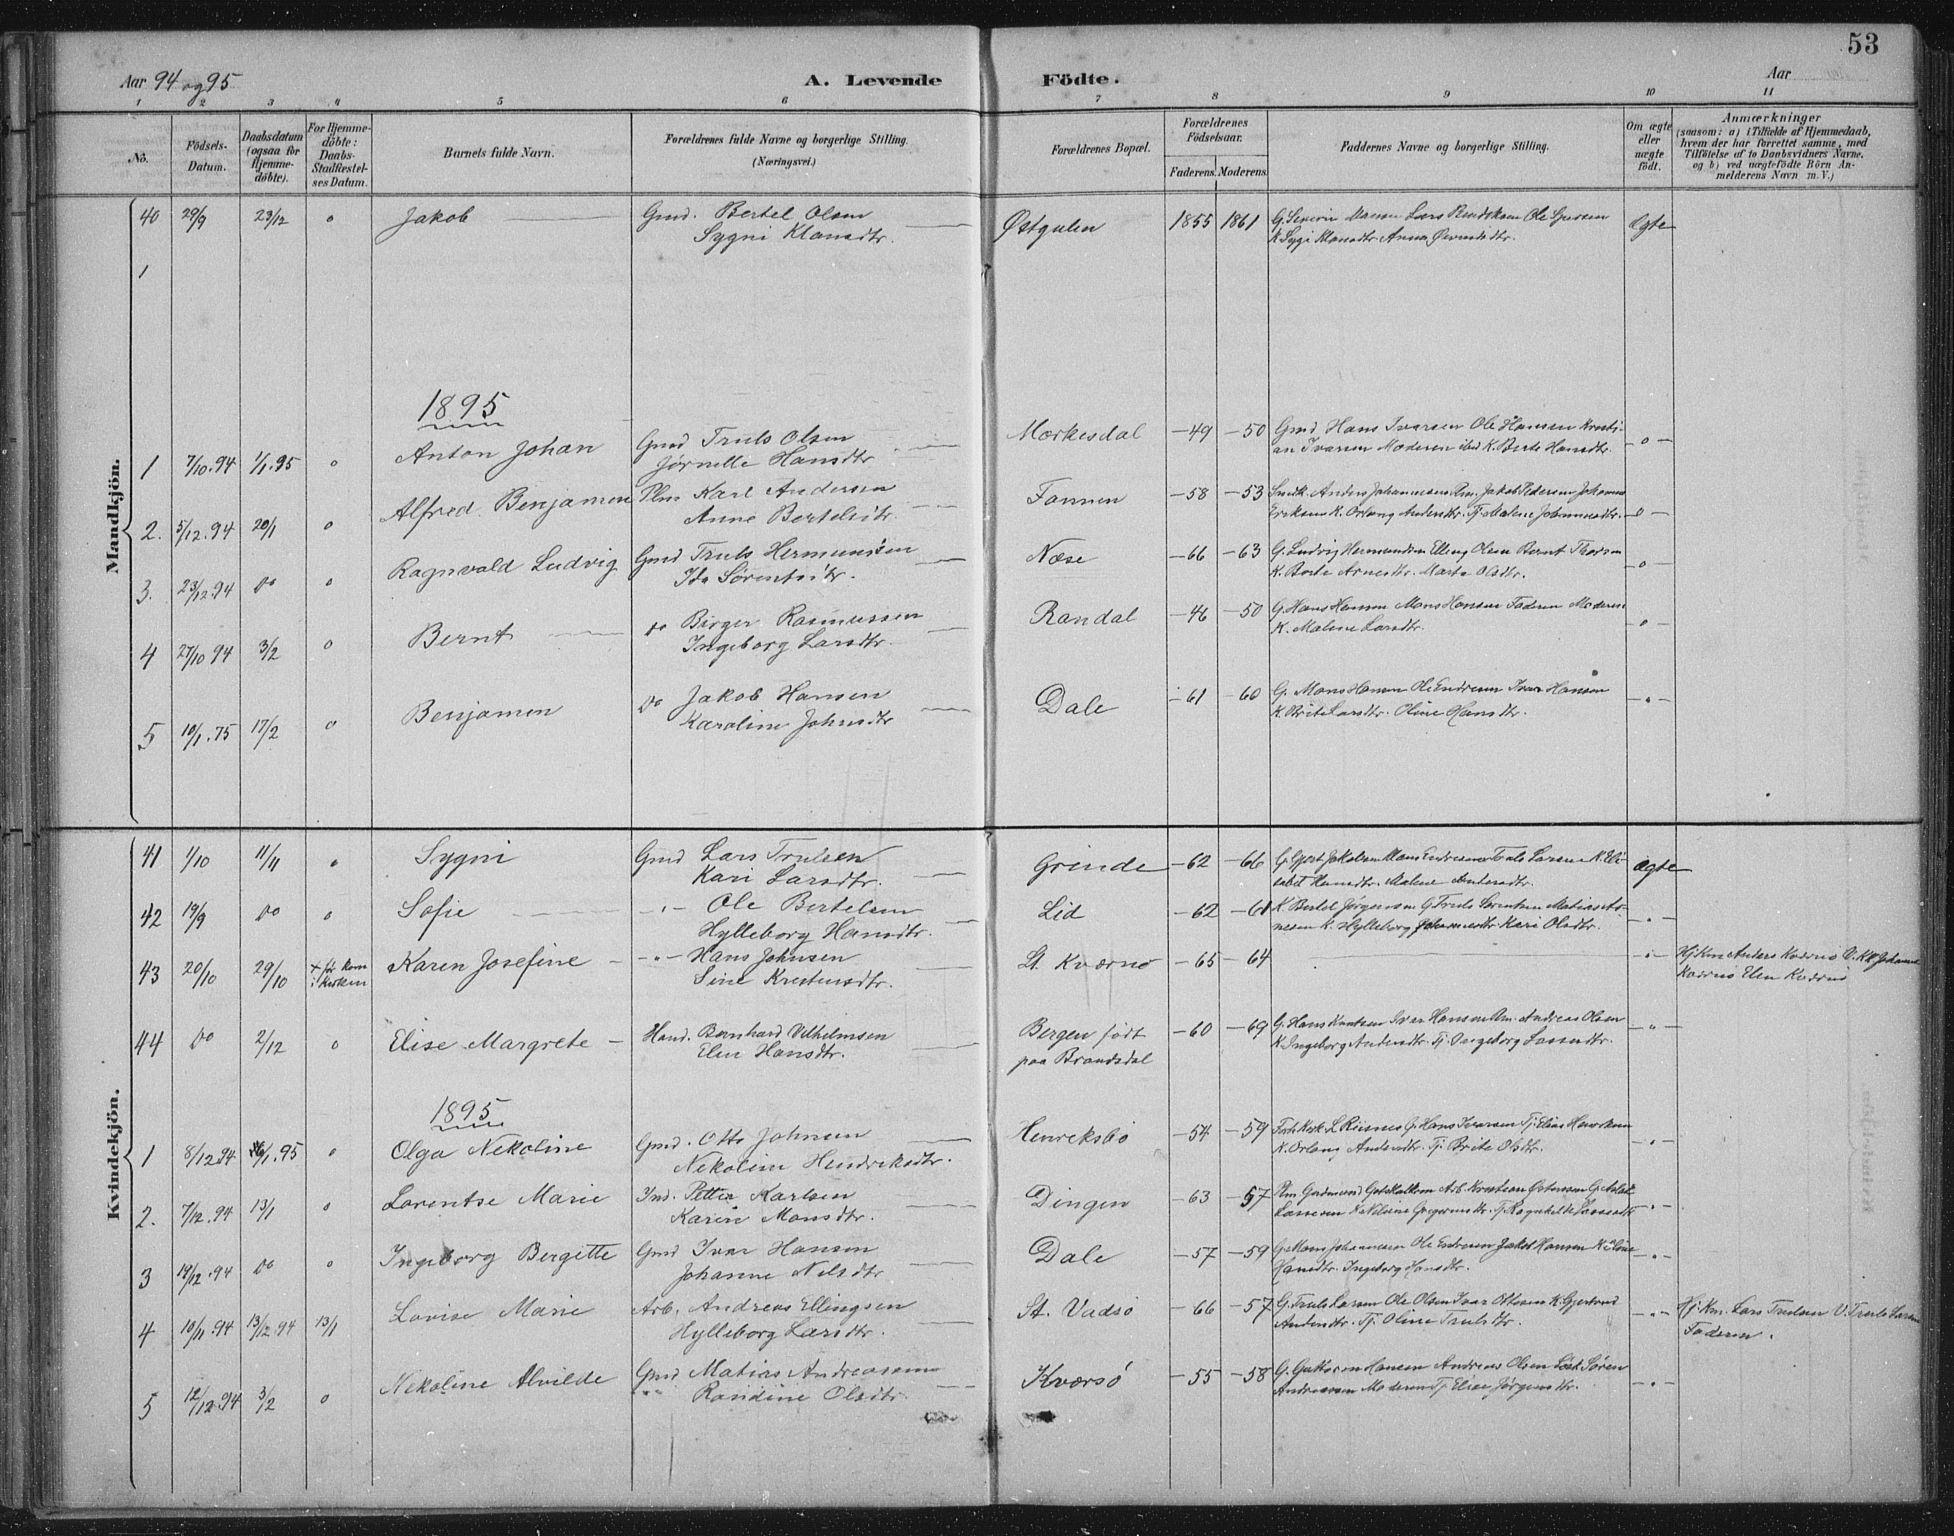 53
Aar 94 og 95
A. Levende Födte.
Aar
1 2 3 4 5 6 7 8 9 10 11
No.
Födsels-Datum.
Daabsdatum (ogsaa for Hjemme-döbte).
For Hjemme-döbte: Daabs-Stadfestel-ses Datum.
Barnets fulde Navn.
Forældrenes fulde Navne og borgerlige Stilling.
(Næringsvei.)
Forældrenes Bopæl.
Forældrenes Födselsaar.
Faderens. Moderens.
Faddernes Navne og borgerlige Stilling.
Om ægte eller uægte födt.
Anmærkninger
(saasom: a) i Tilfælde af Hjemmedaab, hvem der har forrettet samme, med Tilföielse af to Daabsvidners Navne, og b) ved uægte födte Börn An-melderens Navn m. V.)
Mandkjön.
40 29/9 23/12 o Jakob Gmd. Bertel Olsen Østgulen 1855 1861 Ole Ægte
Sygni Klausdtr.
1
1895
1 7/10.94 1/1.95 o Anton Johan Gmd Truls Olsen Mærkesdal -49 -50 Gmd Hans Ivarsen Ole Hansen Kristi-
Jørnelle Hansdtr. an Ivarsen Moderen K. Berte Hansdtr. -o-
2. 5/12.94 20/1 o Alfred Benjamen Karl Andersen Fonnen -58 -53 Anders Johannesen Jakob Pedersen Johannes
Anne Bertelsdtr. Eriksen K. Andersdtr. Tj. Malene Johannesdtr. -o-
3. 23/12.94 Do o Ragnvald Ludvig Gmd Truls Hermundsen Næse -66 -63 G. Ludvig Hermundsen Elling Olsen Bernt
Ida Sørensdtr. K. Berte Arnesdtr. Marta Olsdtr. -o-
4 27/10 94 3/2 o Bernt Do Birger Rasmussen Randal -46 -50 G. Hans Hansen Mons Hansen Faderen Moderen
Ingeborg Larsdtr. K. Malene Larsdtr. -o-
5 10/1.75 17/2 o Benjamen Do Jakob Hansen Dale -61 -60 G. Mons Hansen Ole Endresen Ivar Hansen
Karoline Johnsdtr K. Brite Larsdtr. Oline Hansdtr. -"-
Kvindekjön.
41 1/10 11/11 o Sygni Gmd Lars Trulsen Grinde -62 -66 G. Gjert Jakobsen Mons Endresen Truls Larsen K. Eli- ægte
Kari Larsdtr. sabet Hansdtr. Malene Andersdtr.
42 19/9 Do o Sofie -"- Ole Bertelsen Lid -62 -61 K. Bertel Jørgensen G. Truls Sørensen Matias
Hylleborg Hansdtr. K. Hylleborg Kari Olsdtr. -"-
43 20/10 29/10 + før kom i Kirken Karen Josefine -"- Hans Johnsen St. Kværnø -65 -64 -"- Hj. Km Anders Kværnø V. Johannes
Sine Krestensdtr. Kværnø Elen Kværnø
44 Do 2/12 o Elise Margrete Hand. Bernhard Vilhelmsen Bergen født -60 -69 G. Hans Knutsen Ivar Hansen Andreas Olsen -"-
Elen Hansdtr. paa Brandsdal K. Ingeborg Andersdtr. Tj. Ingeborg Lassesdtr.
1895
1 8/12.94 6/1.95 o Olga Nekoline Gmd. Otto Johnsen Henriksbø -54 -59 L. Risnes G. Hans Ivarsen Tj. Elias Henriksen
Nekoline Hendriksdtr. K. Andersdtr. Tj. Brite Olsdtr. -"-
2. 7/12.94 13/1 o Lorentse Marie Ind. Petter Karlsen Dingen -63 -57 Arb. Kristian
Karen Monsdtr. Lassesen -"-
3 14/12.94 Do o Ingeborg Bergitte Gmd Ivar Hansen Dale -57 -59 G. Mons Johannesen Ole Endresen Jakob Hansen K. Oline
Johanne Nilsdtr Hansdtr. Ingeborg Hansdtr. -"-
4 10/11.94 13/12.94 13/1 Lovise Marie Arb. Andreas Ellingsen St. Vadsø -66 -57 G. Truls Larsen Ole Olsen Ivar Ottesen K. Gjertrud -"- Hj. Km. Lars Trulsen V. Truls Larsen
Hylleborg Larsdtr. Andersdtr. Tj. Oline Trulsdtr Faderen.
5 12/12.94 3/2 o Nekoline Alvilde Gmd Matias Andreassen Kværsø -55 -58 G. Hansen Andreas Olsen Søren
Randine Olsdtr. Andreassen Moderen Tj. Elise Jørgensdtr. -"-